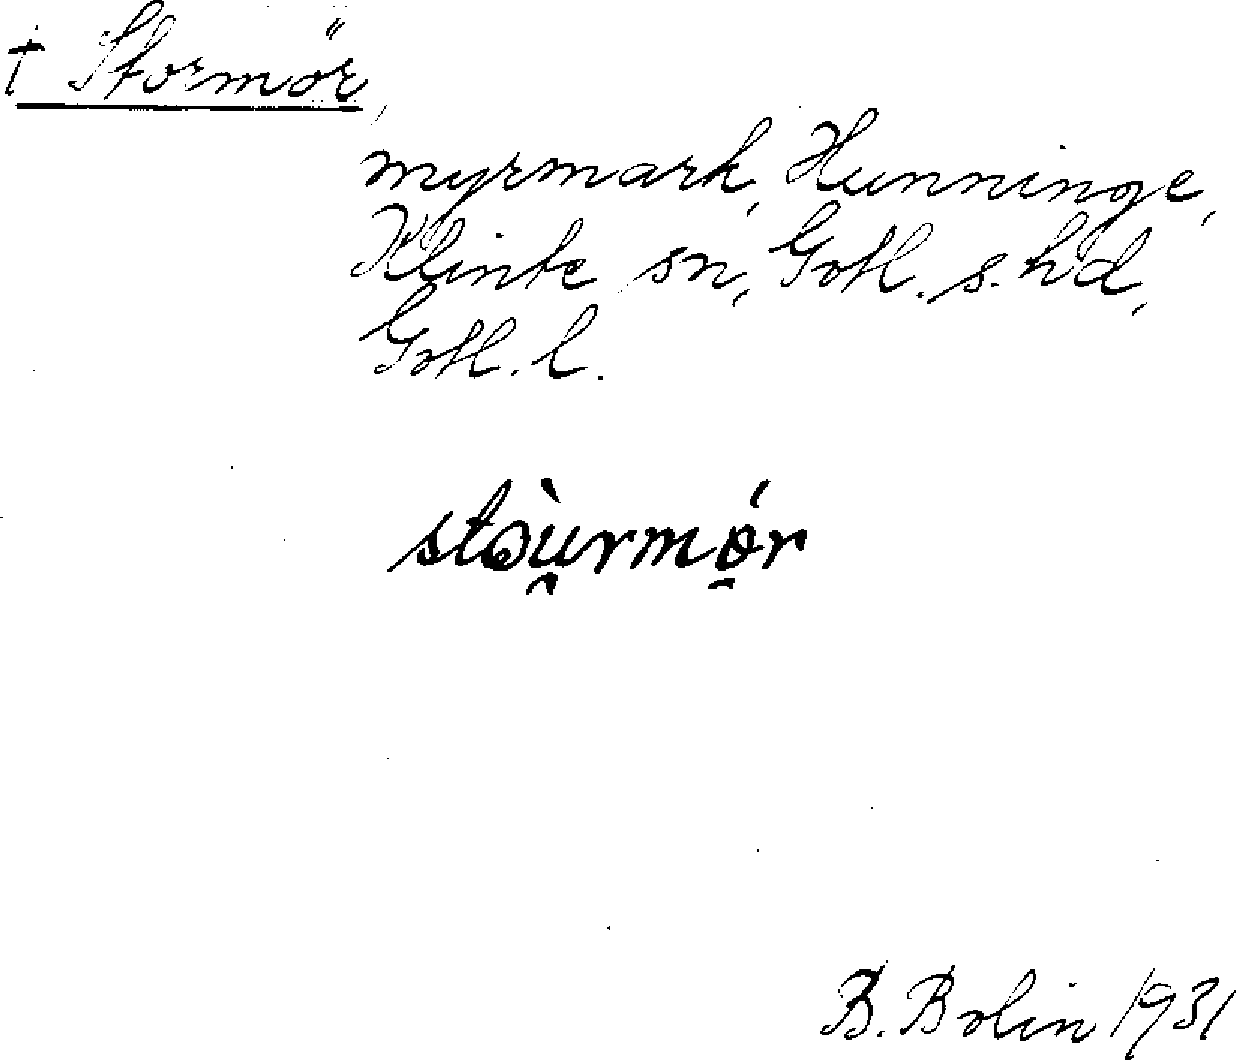 † Stormör,
myrmark, Hunninge,
Klinte sn, Gotl. s. hd,
Gotl. l.
stòu̯rmǿ̱r
B. Bolin 1931